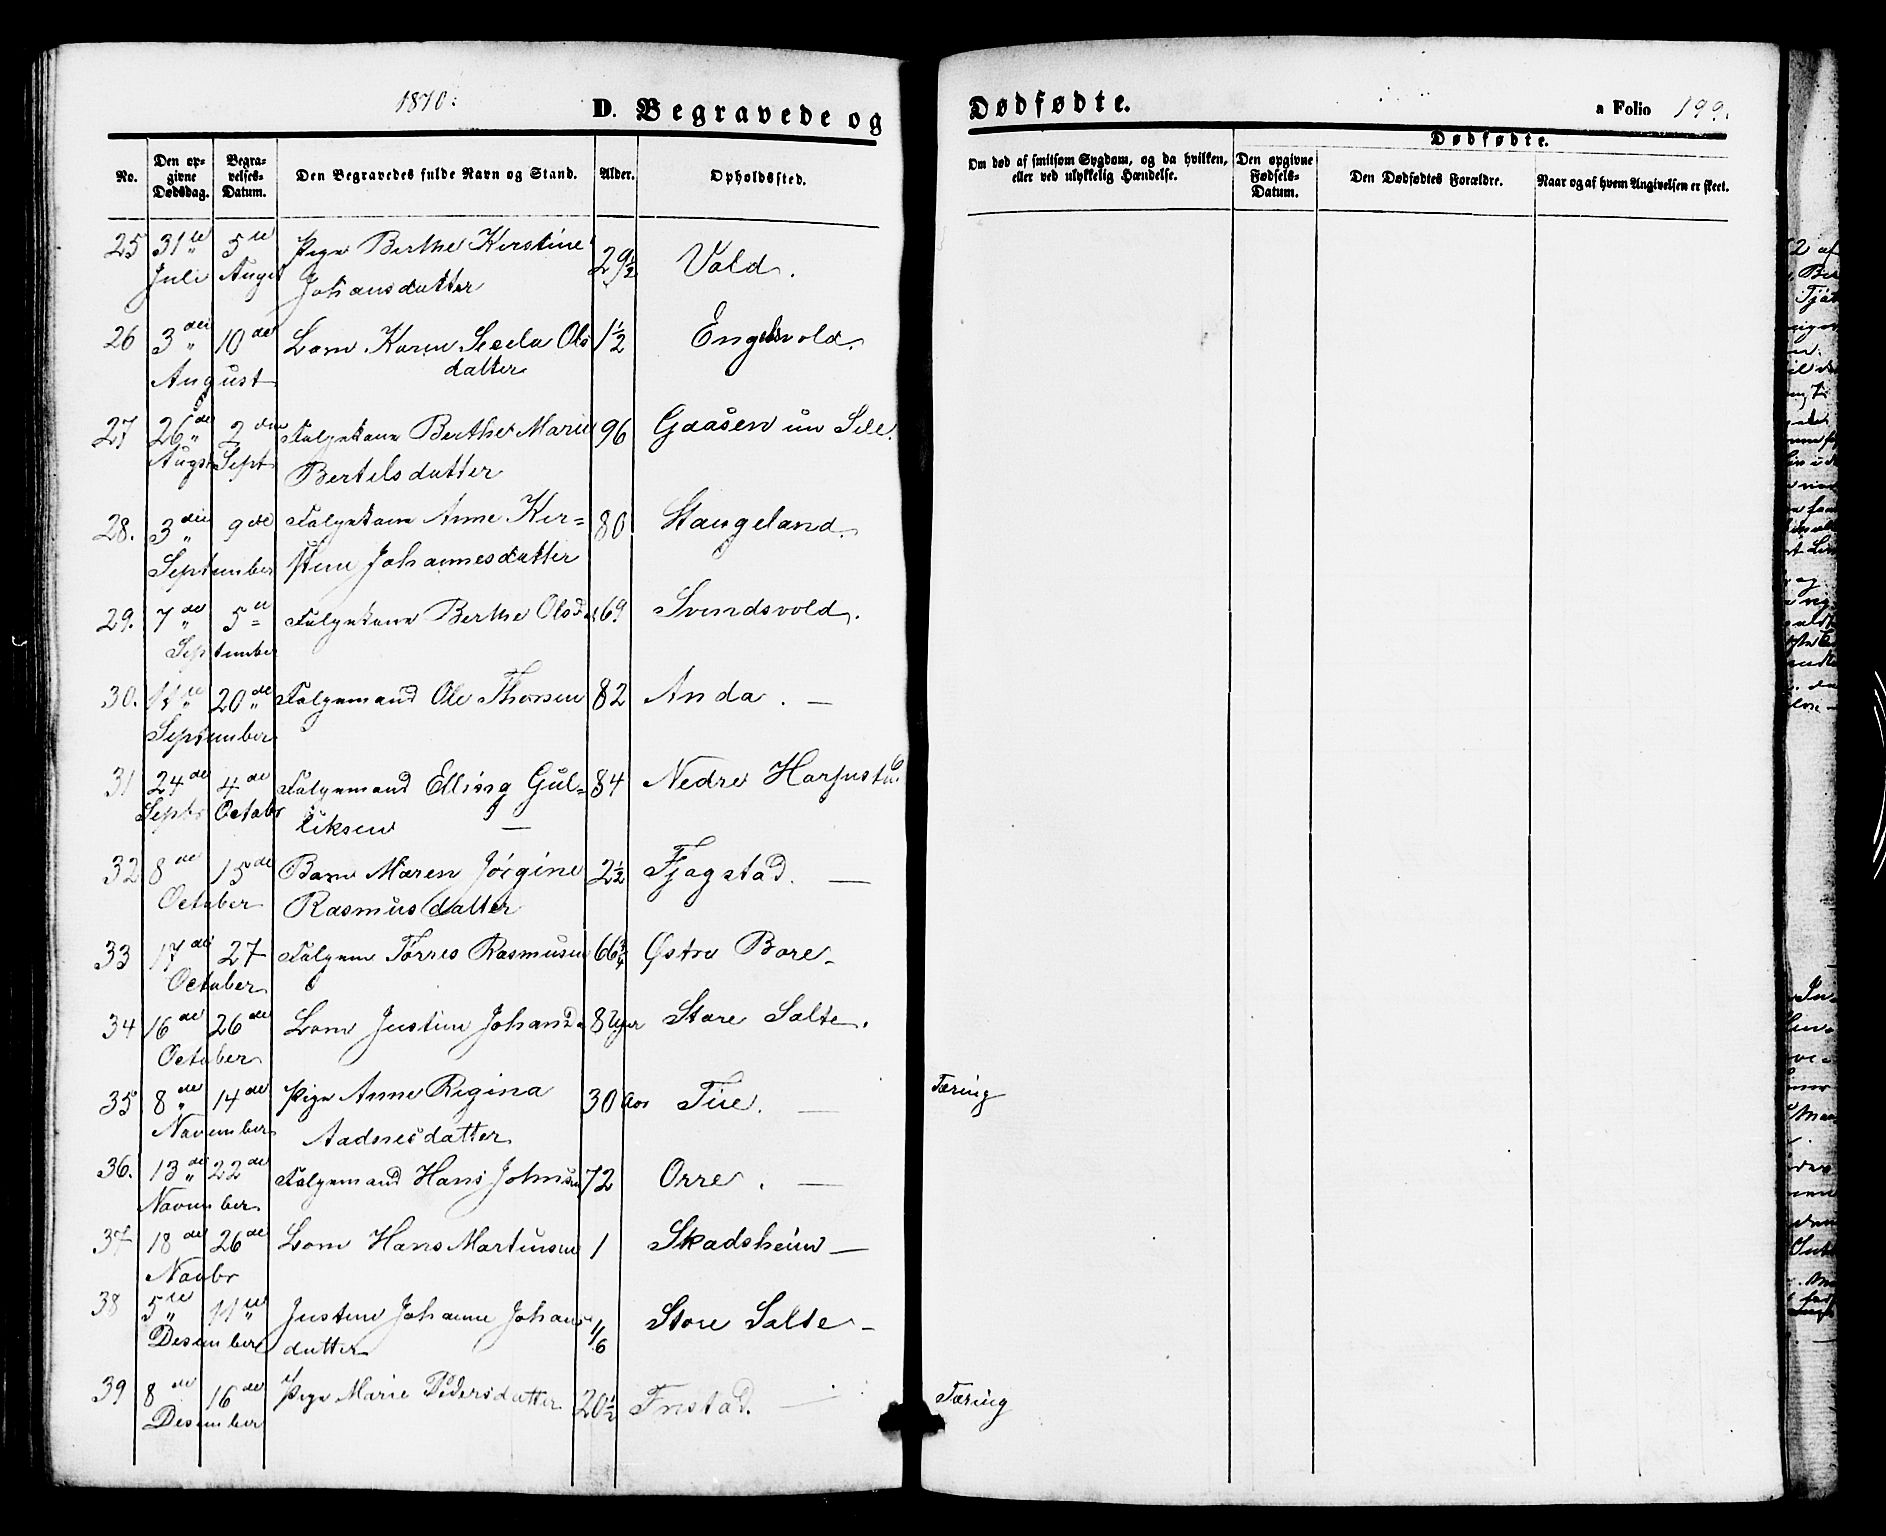 1870.
D. Begravede og Dødfødte.
a Folio 199.
No.
Den opgivne Dødsdag.
Begravelses-Datum.
Den Begravedes fulde Navn og Stand.
Alder.
Opholdssted.
Om død af smitsom Sygdom, og da hvilken, eller ved ulykkelig Hændelse.
Dødfødte.
Den opgivne Fødsels-Datum.
Den Dødfødtes Forældre.
Naar og af hvem Angivelsen er skeet.
25 31te 5te Pige Berthe Kirstine 29½ Vold.
Juli Augst Johansdatter
26 3die 10de Karen Sesela Ols 1½ Engelsvold.
August datter
27 26de 2den Folgekone Berthe Marie 96 Gaasen un Sele.
Augst Sept Bertelsdatter
28. 3die 9de Folgekone Anne Kir= 80 Stangeland.
September stine Johannesdatter
29. 7de 5te Folgekone Berthe Olsd. 69 Svindsvold.
September
30. 11te 20de Folgemand Ole Thorsen 82 Anda. —
September
31 24de 4de Folgemand Elling Gul= 84 Nedre
Septr Octobr liksen —
32 8de 15de Barn Maren Jørgine 2½ Fjogstad. —
October Rasmusdatter
33 17de 27 Folgem Torres Rasmusen 66¾ Østre Bore
October
34 16de 26de Justine Johansd. 8 Uger Store Salte.
October
35 8de 14de Pige Anne Regina 30 Aar Tue. — Tæring
November Aadnesdatter
36. 13de 22de Folgemand Hans Johnsen 72 Orre. —
November
37 18de 26de Hans Martinsen 1 Skadsheim —
Novbr
38 5te 11te Justine Johanne Johans 1/6 Store Salte —
Desember datter
39 8de 16de Pige Marie Pedersdatter 20½ Tæring
Desember